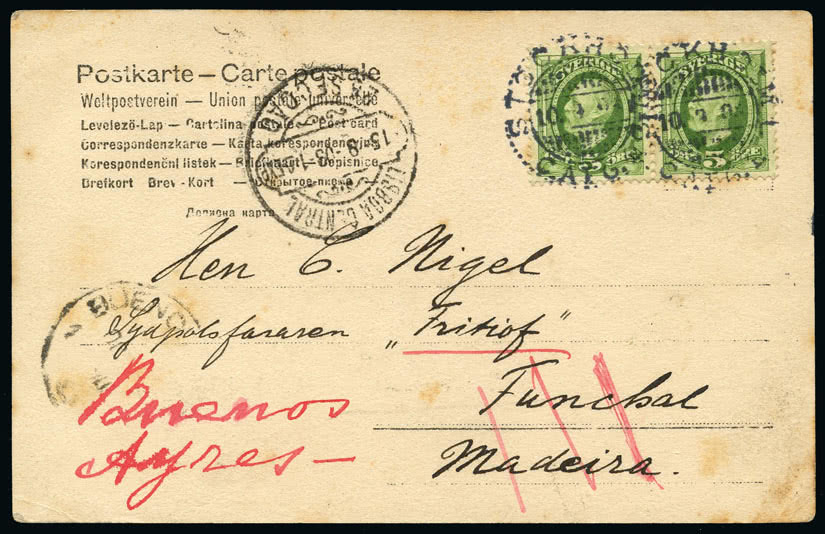 Postkarte – Carte postale
Weltpostverein – Union postale universelle
Levelező-Lap – Cartolina postale – Post card
Correspondenzkarte – Karta korespondencyjna
Korespondenční listek – Briefkaart – Dopisnice
Brefkort – Brev-Kort – Открытое письмо
Дописна карта
STOCKHOLM
10. 9.
SVERIGE
5
SVERIGE
5
LISBOA CENTRAL
15 9 03
BUENO
Herr C. Nigel
Sydpolsfararen „Fritiof"
Buenos
Ayres –
Funchal
Madeira.